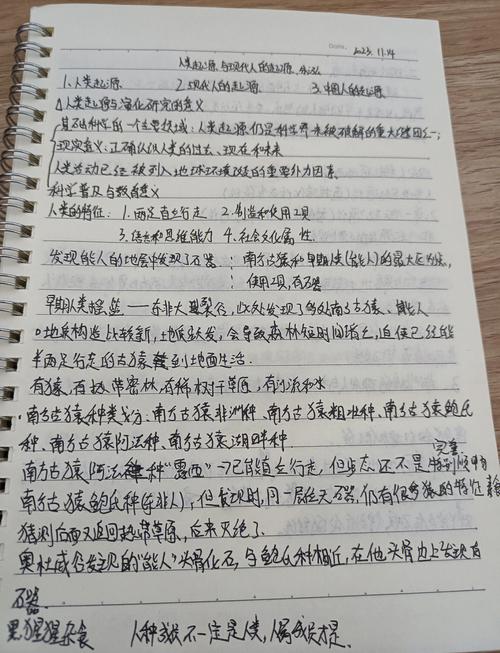 Date. 2023. 11.14
人类起源与现代人的起源
1. 人类起源 2. 现代人的起源 3. 中国人的起源
人类起源与演化研究的意义
基础科学的一个主要领域：人类起源仍是科学界未被破解的重大谜团之一；
现实意义：正确认识人类的过去、现在和未来
人类活动已经被列入地球环境改变的重要外力因素
科学普及与教育意义
人类的特征：1. 两足直立行走 2. 制造和使用工具
3. 语言和思维能力 4. 社会文化属性.
发现能人的地层中发现了石器：南方古猿和早期人类(能人)的最大区别，
使用工具，有石器
早期人类摇篮——东非大裂谷，此处发现了多处南方古猿、能人
地质构造比较新，土地低洼，会导致森林短时间消亡，迫使已经能
半两足行走的古猿到地面生活.
有猿，有热带密林，有稀树干草原，有河流和水
南方古猿种类划分：南方古猿非洲种、南方古猿粗壮种、南方古猿鲍氏
种、南方古猿阿法种、南方古猿湖畔种
南方古猿阿法种"露西"→已能直立行走，但步态还不是完全
南方古猿鲍氏种(东非人)，但发现时，同一层位无石器，仍有很多猿的特征
猜测后面又返回热带草原，后来灭绝了.
奥杜威谷发现的"能人"头骨化石，与鲍氏种相近，在他头骨边上发现有
石器.
黑猩猩杂食 人种成员不一定是人类，人属成员才是.